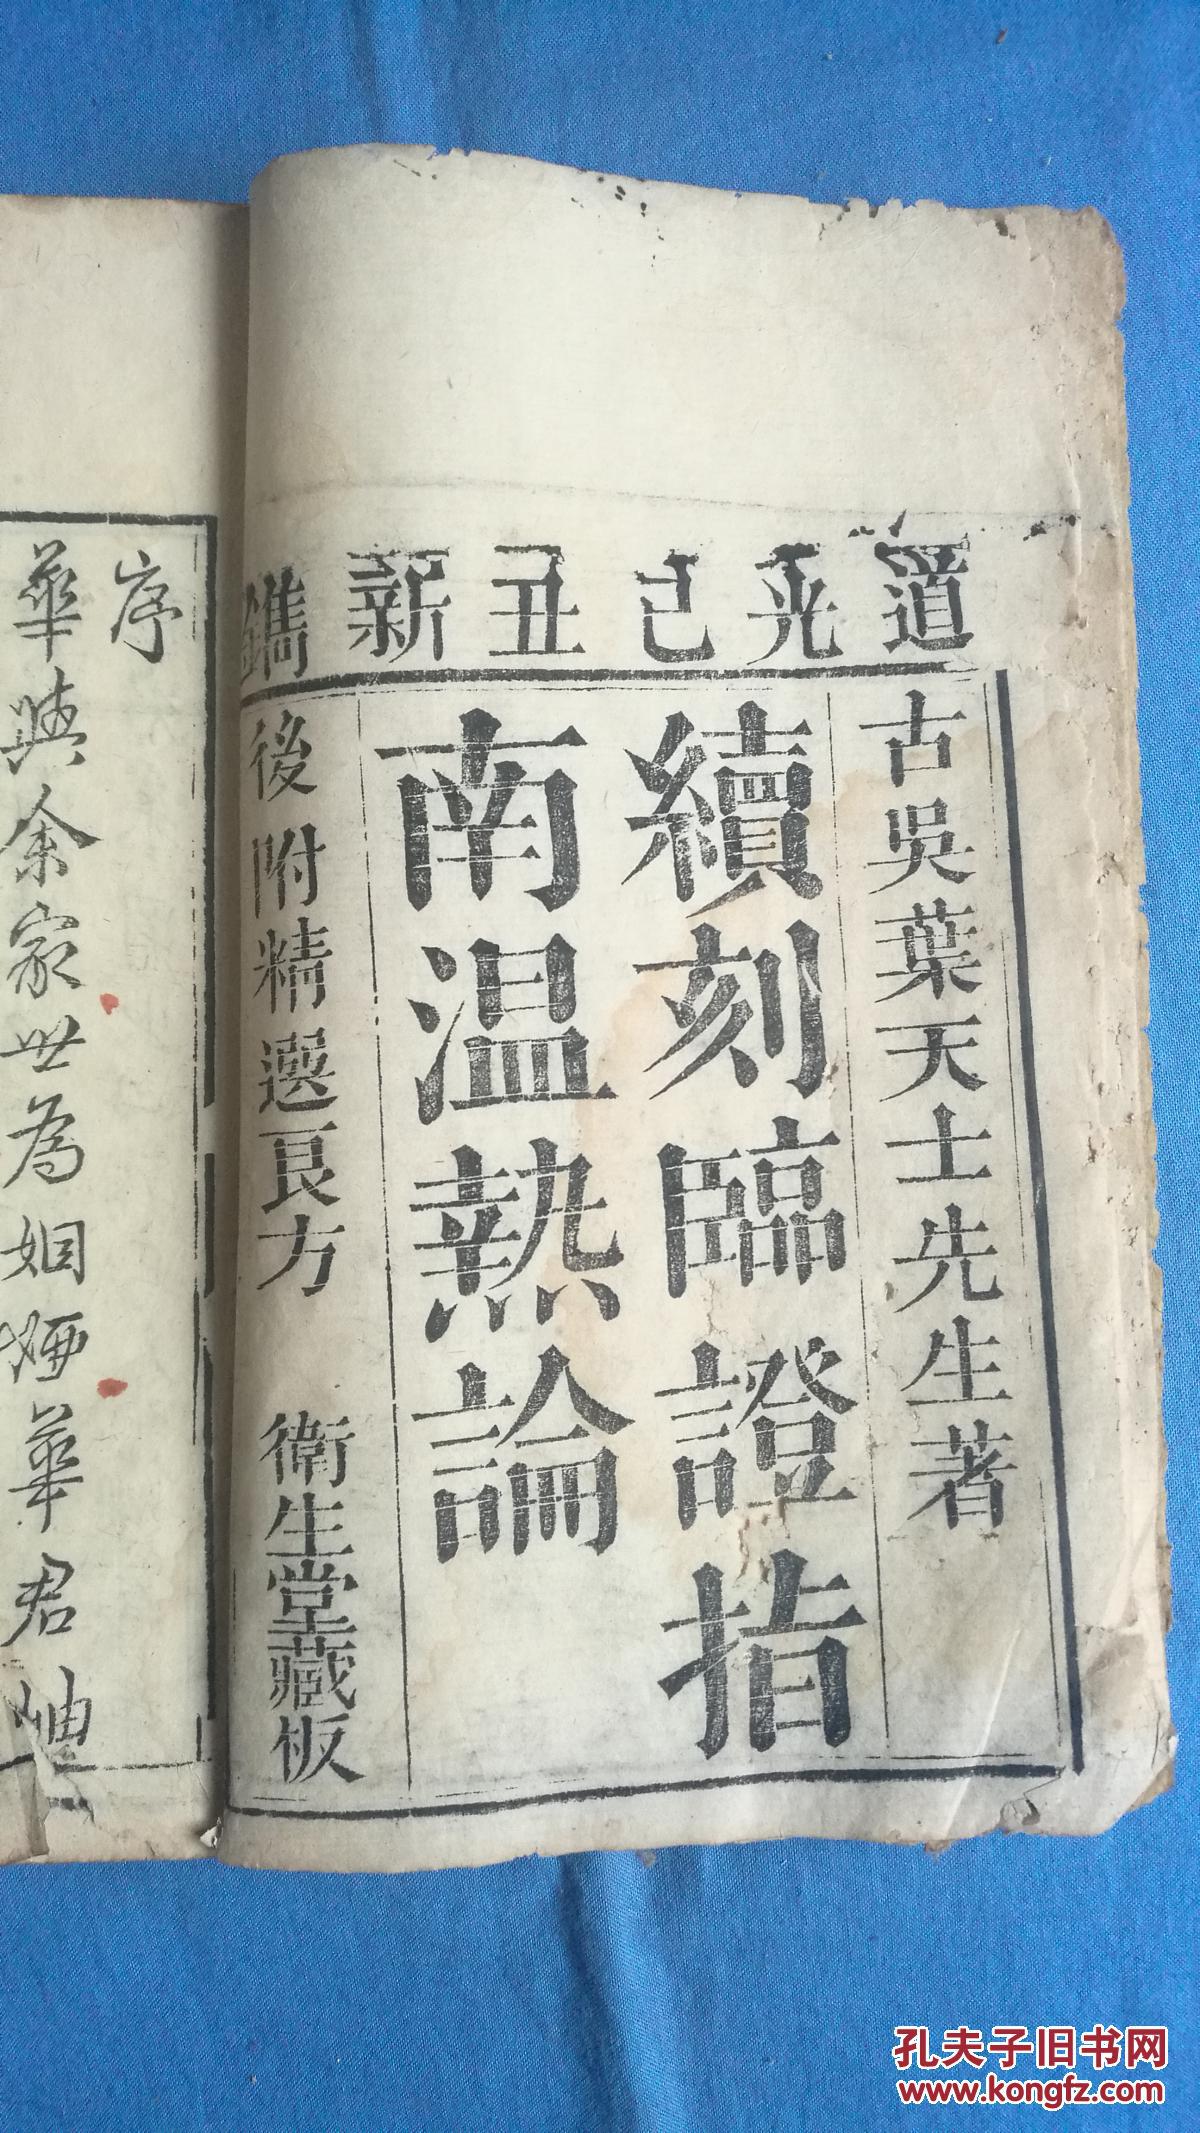 道光己丑新鐫
古吳葉天士先生著
續刻臨證指
南温熱論
後附精選良方 衛生堂藏板
序
華與余家世為姻婭華君岫
孔夫子旧书网
www.kongfz.com